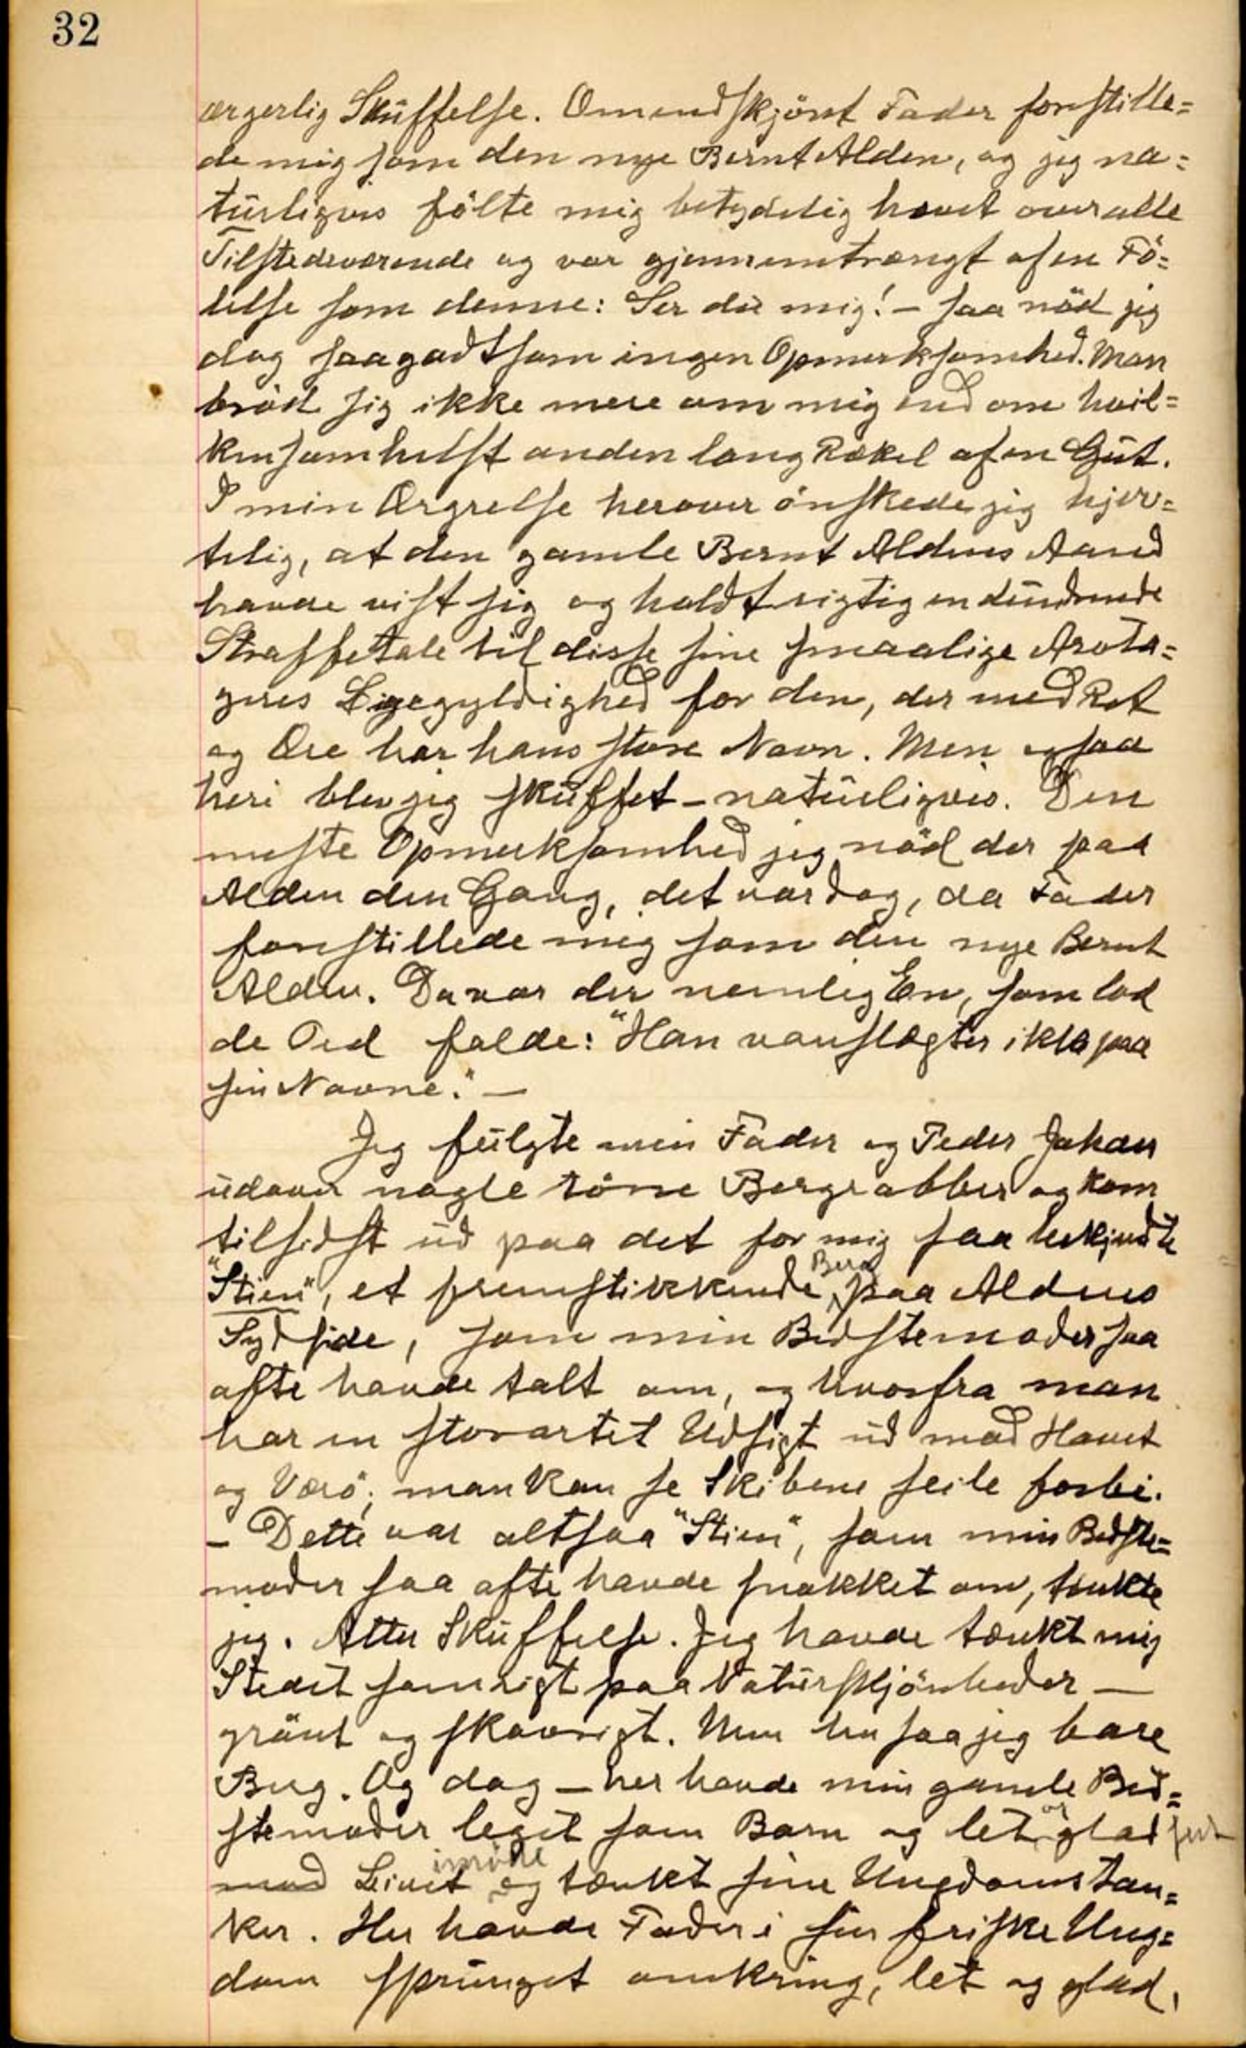 32
ærgerlig Skuffelse. Omendskjönt Fader forstille=
de mig som den nye Bernt Alden, og jeg na=
turligvis fölte mig betydelig hævet over alle
Tilstedeværende og var gjennemtrængt af en Fö=
lelse som denne: Ser du mig! – saa nöd jeg
dog saagodtsom ingen Opmerksomhed. Man
bröd sig ikke mere om mig end om hvil=
kensomhelst anden lang Rækel af en Gut.
I min Ærgrelse herover önskede jeg hjer=
telig, at den gamle Bernt Aldens Aand
havde vist sig og holdt rigtig en dundrende
Straffetale til disse sine smaalige Arota=
geres Ligegyldighed for den, der med Ret
og Ære har hans store Navn. Men ogsaa
heri blev jeg skuffet – naturligvis. Den
meste Opmerksomhed jeg nöd der paa
Alden den Gang, det var dog, da Fader
forstillede mig som den nye Bernt
Alden. Da var der nemlig En, som lod
de Ord falde: "Han vanslægter ikke paa
sin Navne." –
Jeg fulgte min Fader og Peder Johan
udover nogle törre Bergrabber og kom
tilsidst ud paa det for mig saa beskjendte
"Stien", et fremstikkende Berg paa Aldens
Sydside, som min Bedstemoder saa
ofte havde talt om, og hvorfra man
har en storartet Udsigt ud mod Havet
og Værö; man kan se Skibene seile forbi.
– Dette var altsaa "Stien", som min Bedste=
moder saa ofte havde snakket om, tænkte
jeg. Atter Skuffelse. Jeg havde tænkt mig
Stedet som rigt paa Naturskjönheder –
grönt og skovrigt. Men her saa jeg bare
Berg. Og dog – her havde min gamle Bed=
stemoder leget som Barn og let og glad seet
mod Livet imöde og tænkt sine Ungdomstan=
ker. Her havde Fader i sin friske Ung=
dom sprunget omkring, let og glad,